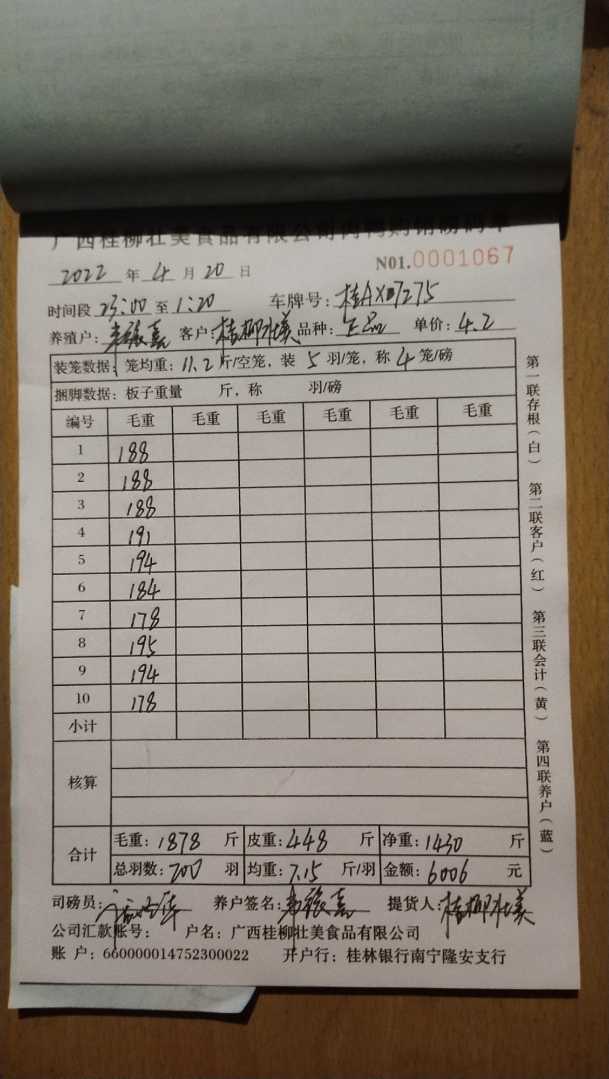 广西桂柳壮美食品有限公司肉鸭购销磅码单
2022 年 4 月 20 日 N01.0001067
时间段 23:00 至 1:20 车牌号: 桂AX07275
养殖户: 客户: 桂柳壮美 品种: 正品 单价: 4.2
装笼数据: 笼均重: 11.2 斤/空笼, 装 5 羽/笼, 称 4 笼/磅
捆脚数据: 板子重量 斤, 称 羽/磅
编号 毛重 毛重 毛重 毛重 毛重 毛重
1 188
2 188
3 188
4 191
5 194
6 184
7 178
8 195
9 194
10 178
小计
核算
合计 毛重: 1878 斤 皮重: 448 斤 净重: 1430 斤
总羽数: 200 羽 均重: 7.15 斤/羽 金额: 6006 元
司磅员: 养户签名: 提货人: 桂柳壮美
公司汇款账号: 户名: 广西桂柳壮美食品有限公司
账 户: 660000014752300022 开户行: 桂林银行南宁隆安支行
第一联存根(白) 第二联客户(红) 第三联会计(黄) 第四联养户(蓝)